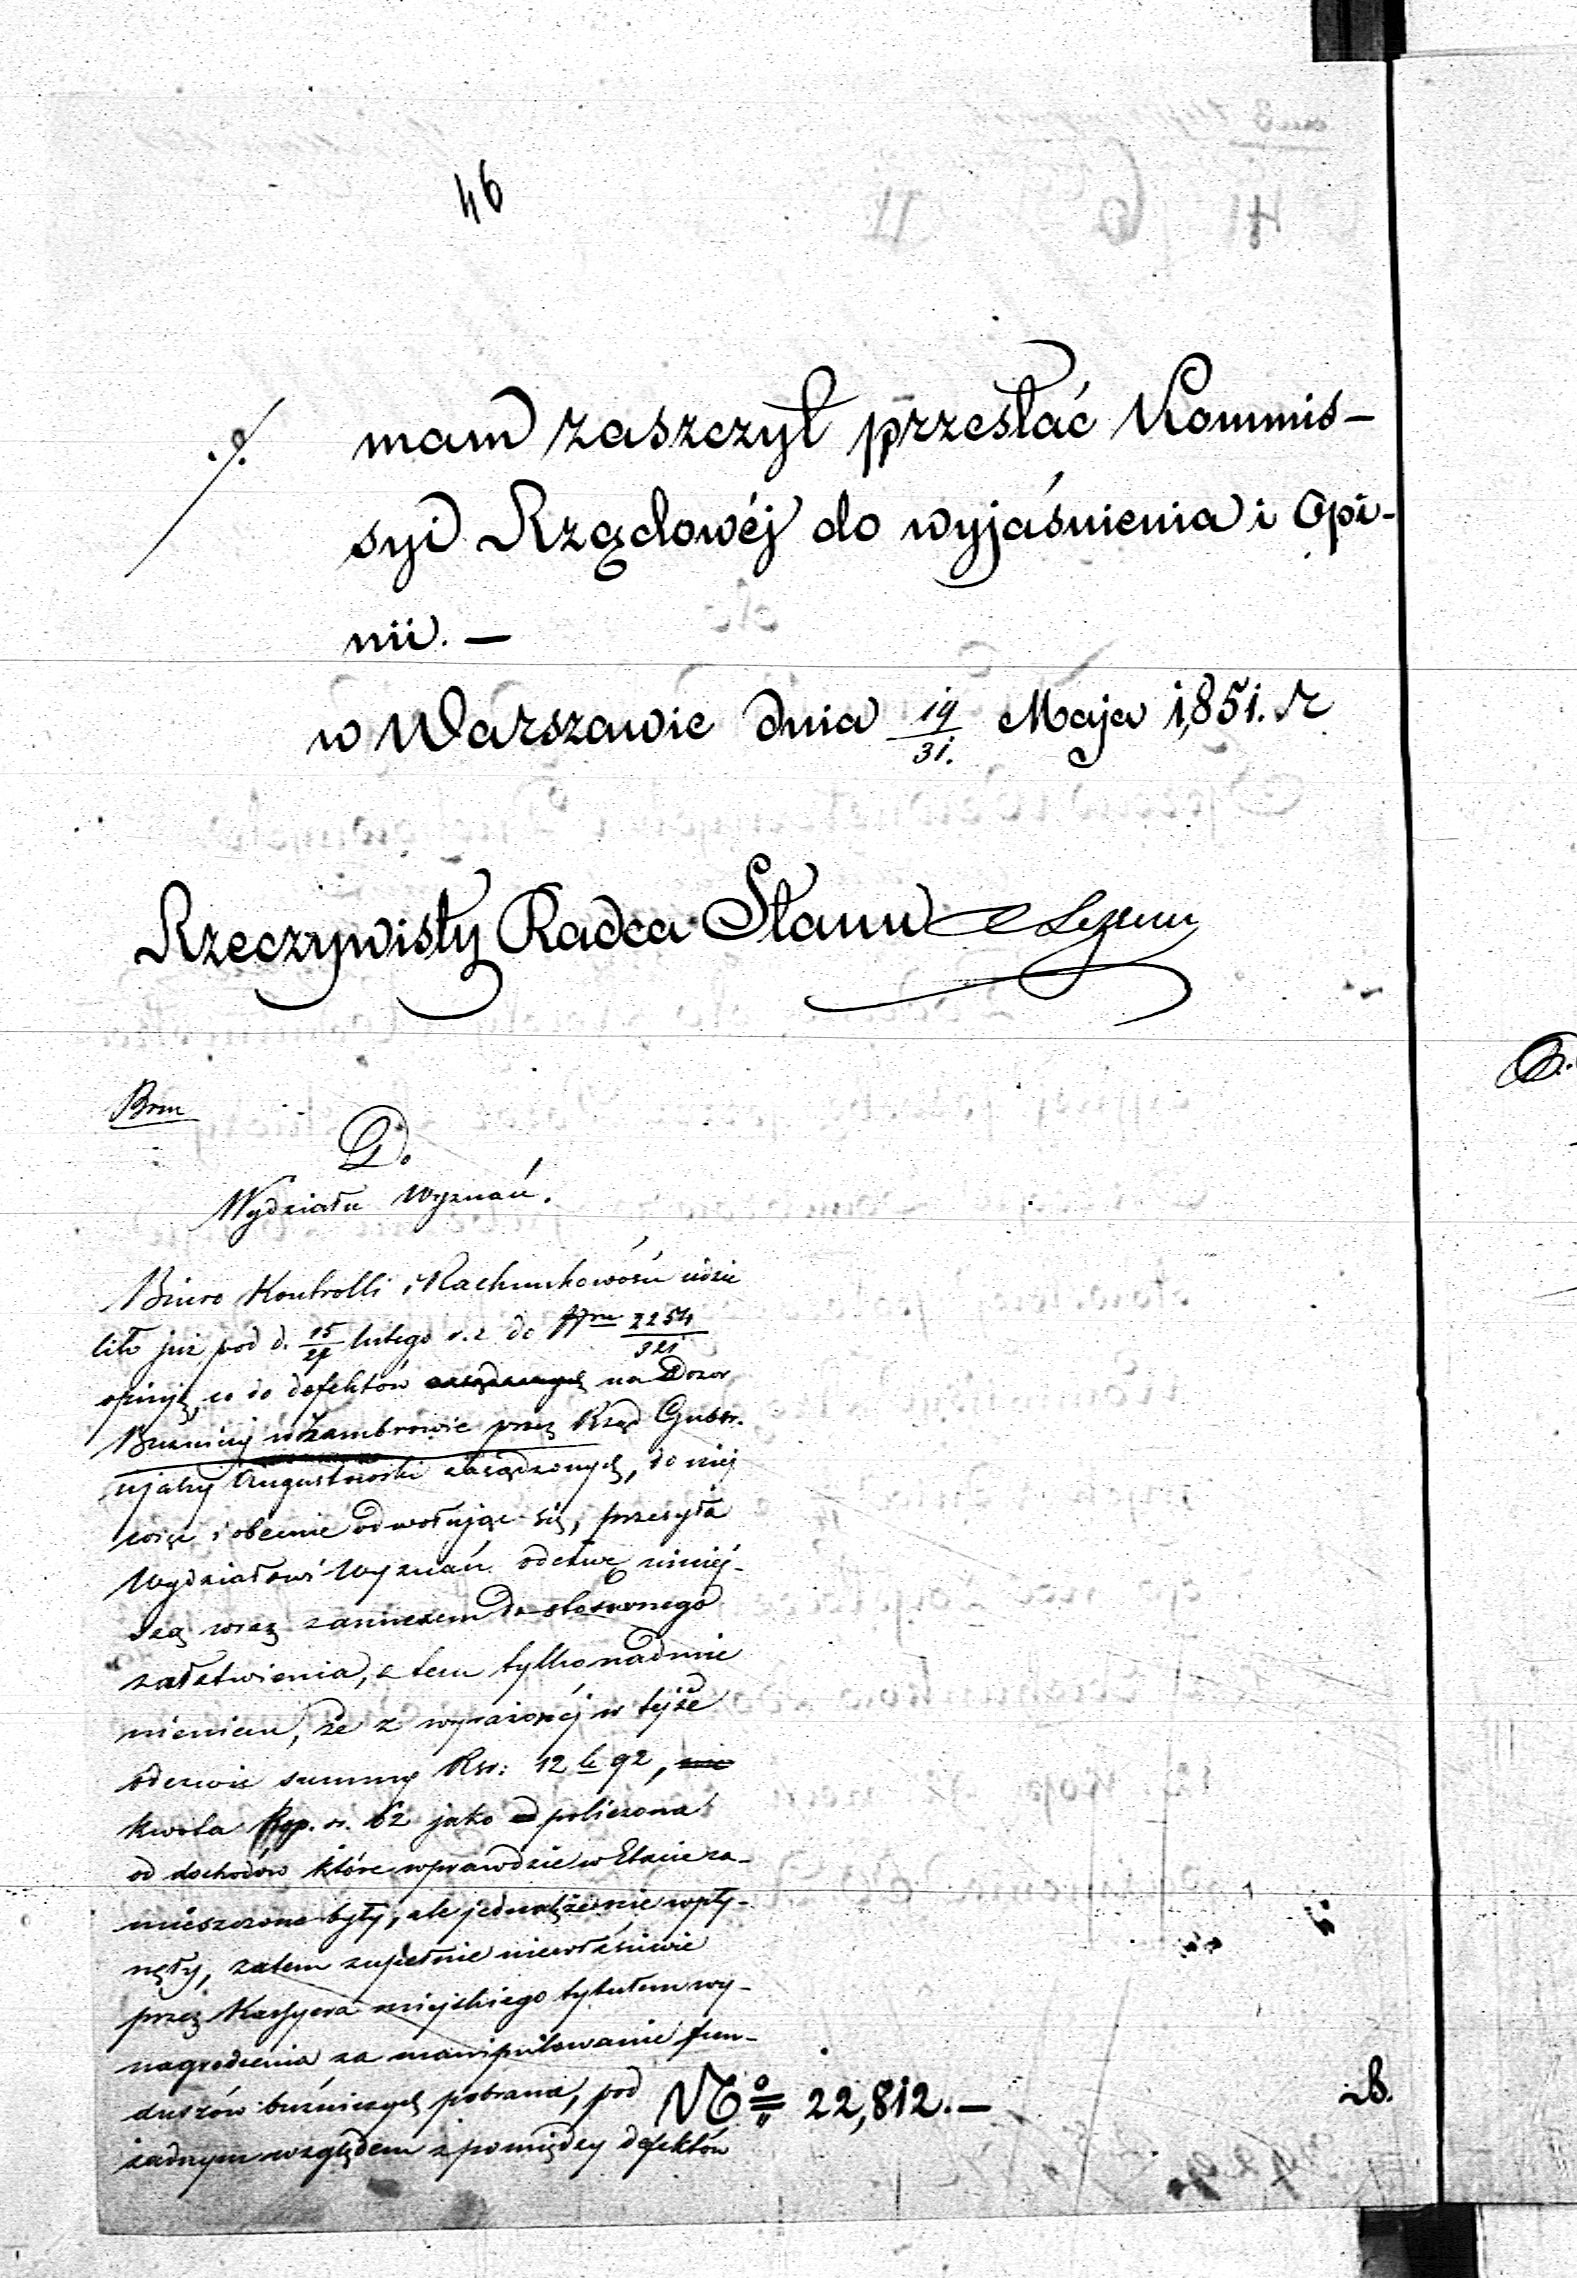 46
mam zaszczyt przesłać Kommis-
syi Rządowéj do wyjaśnienia i Opi-
nii. —
w Warszawie dnia 19/31. Maja 1,851. r
Rzeczywisty Radca Stanu
Brm
Do
Wydziału Wyznań.
Biuro Kontrolli i Rachunkowości udzie
liło już pod d. lutego r. z do 2254/321
opinję, co do defektów na Dozor
Bużniczy w Zambrowie przez Rząd Guber.
njalny Augustowski zarządzonych, do niej
więc i obecnie odwołując się, przesyła
Wydziałowi Wyznań odezwę niniej-
szą wraz z annexem do stosownego
załatwienia, z tem tylko nadmie
nieniem, że z wyrażonéj w téjże
odezwie summy Rsr: 12 k 92,
kwota Kop. sr. 62 jako policzona
od dochodów które wprawdzie w Etacie za-
mieszczone były, ale jednakże nie wpły-
nęły, zatem zupełnie niewłaściwie
przez Kassyera miejskiego tytułem wy-
nagrodzenia za manipulowanie fun-
duszów bużniczych pobrana, pod
żadnym względem z pomiędzy defektów
No 22,812. —